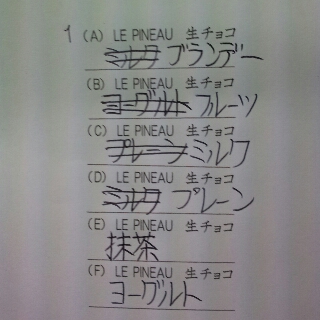 1 (A) LE PINEAU 生チョコ
ミルク ブランデー
(B) LE PINEAU 生チョコ
ヨーグルト フルーツ
(C) LE PINEAU 生チョコ
プレーン ミルク
(D) LE PINEAU 生チョコ
ミルク プレーン
(E) LE PINEAU 生チョコ
抹茶
(F) LE PINEAU 生チョコ
ヨーグルト